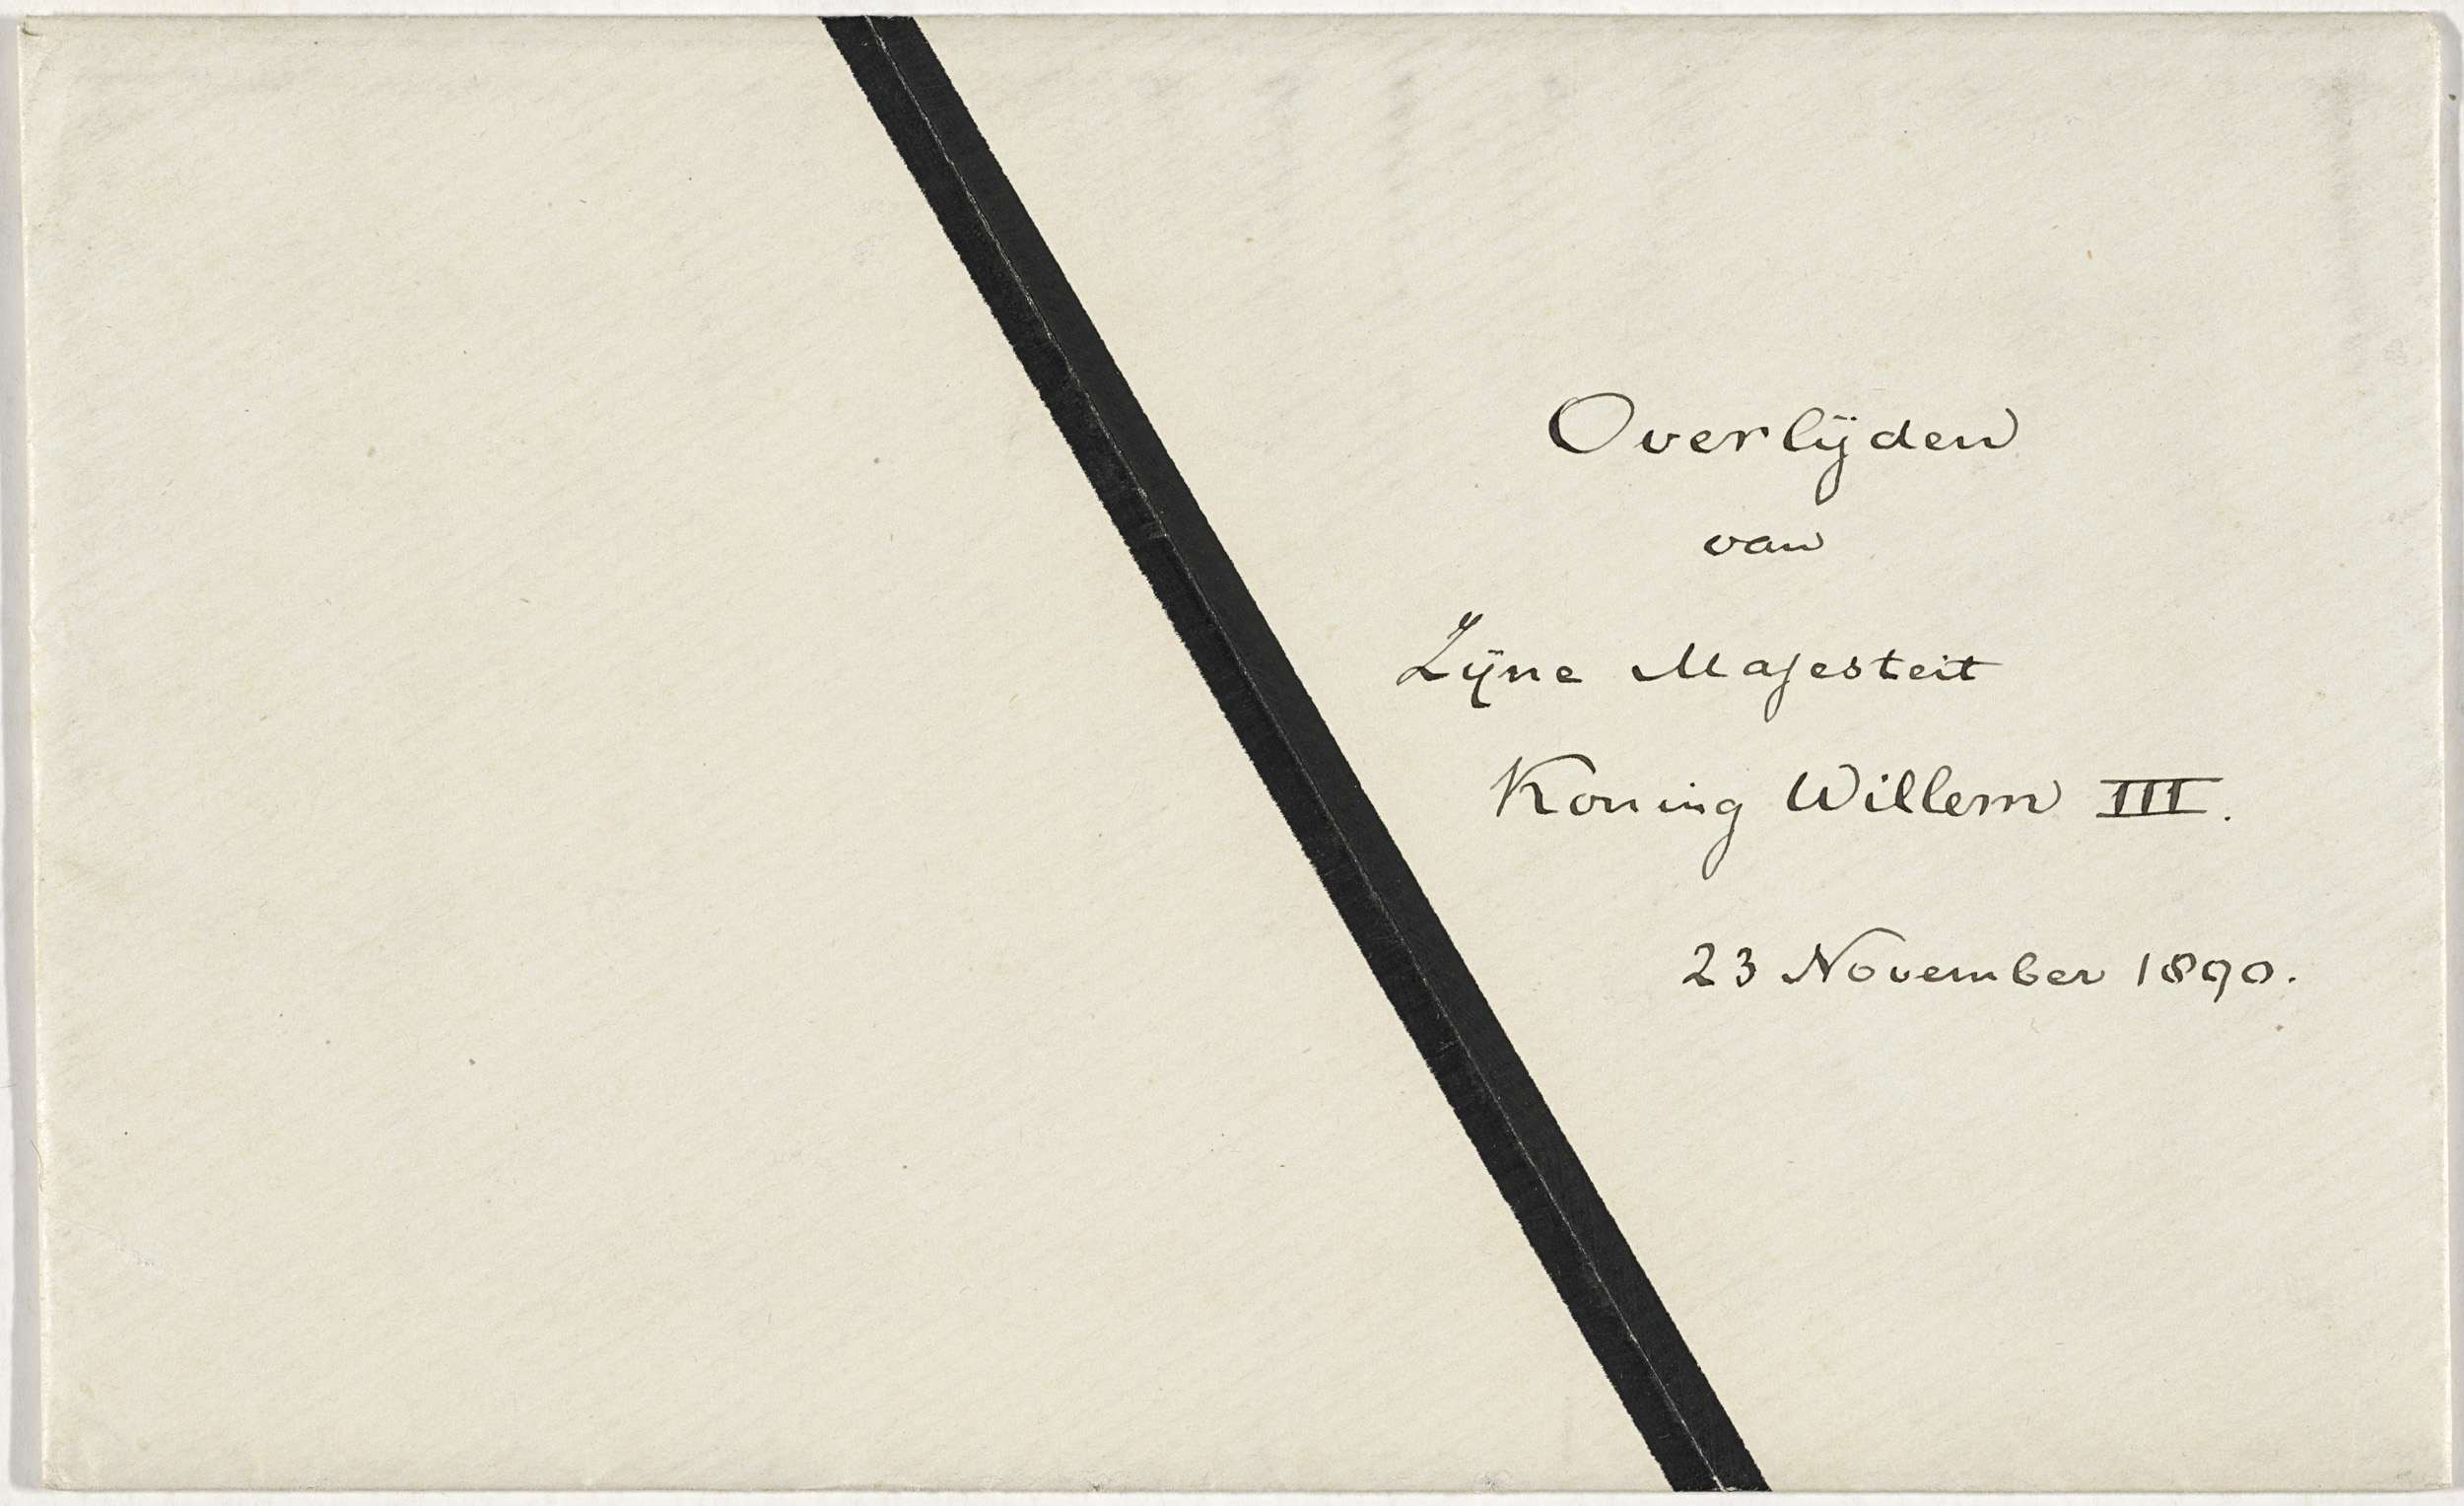 Overlijden
van
Zijne Majesteit
Koning Willem III.
23 November 1890.